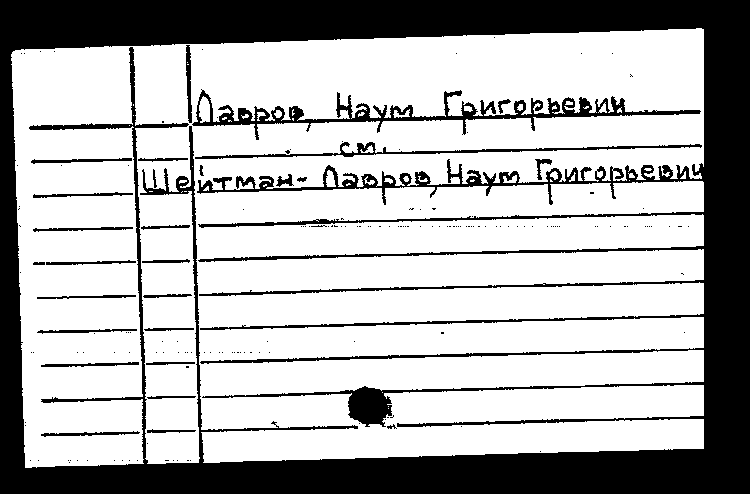 Лавров, Наум Григорьевич
см.
Шейтман- Лавров, Наум Григорьевич